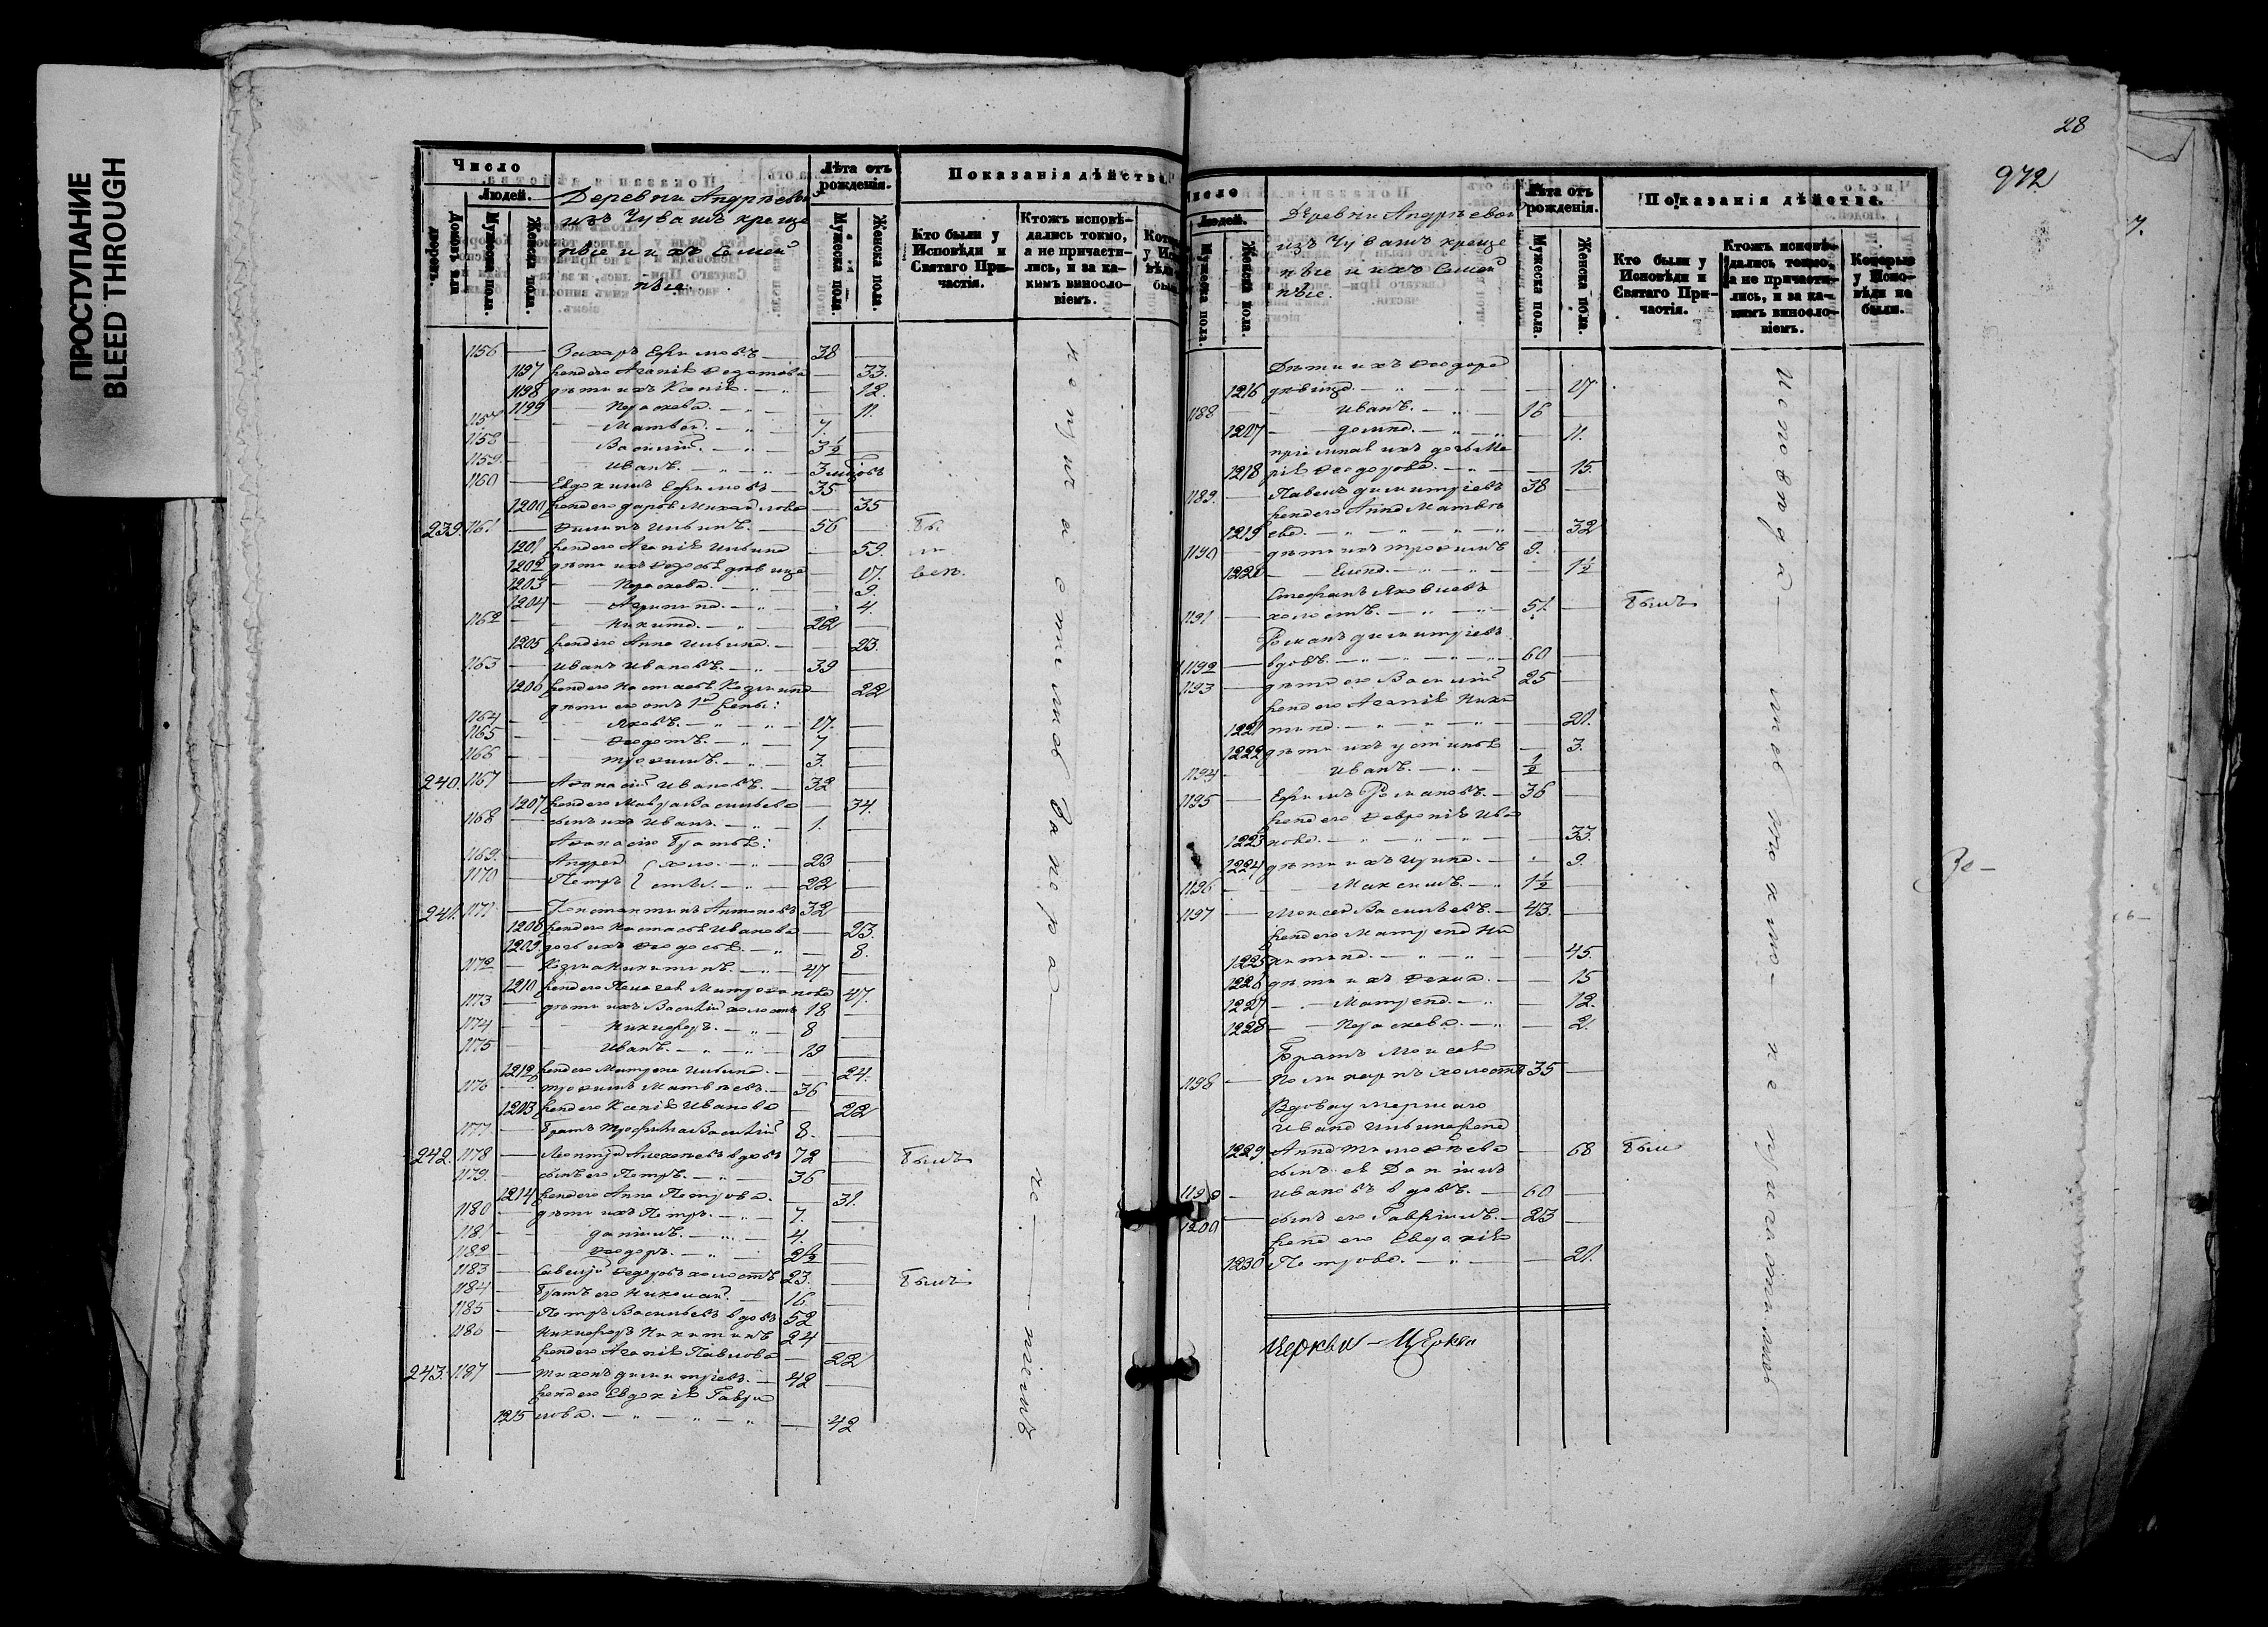 ПРОСТУПАНИЕ
BLEED THROUGH
Число
Людей.
Домовъ или дворовъ.
Мужеска пола.
Женска пола.
Деревни Андрѣевой
изъ Чувашъ креще
ные и ихъ Семей
ные.
Лѣта отъ рожденія.
Мужеска пола.
Женска пола.
Показанія дѣйства.
Кто были у Исповѣди и Святаго Причастія.
Ктожъ исповѣдались токмо, а не причастились, и за какимъ винословіемъ.
1156 Захаръ Ефимовъ 38
1197 жена его Агапія Федотова 33.
1198 дѣти ихъ Ксенія 12.
1199 Параскева 11.
1157 Матвей 7.
1158 Василій 3½
1159. Иванъ 3
1160 Евдокимъ Ефимовъ 35
1200 жена его Дарья Михайлова 35
239. 1161 Филипъ Ильинъ 56 Бы
1201 жена его Агапія Ильина 59. ли
1202 дѣти ихъ девица 17. вси.
1203 Параскева 9.
1204 Агрипина 4.
1162 Никита 22
1205 жена его Анна Ильина 23.
1163 Иванъ Ивановъ 39
1206 жена его Настасья Козмина 22
дѣти его отъ 1й жены:
1164 Яковъ 17.
1165 Феодотъ 7
1166 Трофимъ 3.
240. 1167 Афанасій Ивановъ 32
1207 жена его Мавра Васильева 34.
1168 сынъ ихъ Иванъ 1.
Афанасію братья:
1169. Андрей холо 23
1170 Петръ сты 22
241. 1171 Константинъ Антоновъ 32
1208 жена его Настасья Иванова 23.
1209. дочь ихъ Феодосья 8.
1172 Козма Никитинъ 47
1210 жена его Пелагея Митрофанова 47.
1173 дѣти ихъ Василій холостъ 18
1174 Никифоръ 8
1175 Иванъ 19
1212 жена его Матрена Ильина 24.
1176 Трофимъ Матвѣевъ 36
1203 жена его Ксенія Иванова 22
1177 братъ Трофима Василій 8.
242. 1178 вдовъ 72 Былъ
1179. сынъ его Петръ 36
1214 жена его Анна Петрова 31.
1180 дѣти ихъ Петръ 7.
1181 Даніилъ 4.
1182 Феодоръ 2½
1183 Савелій Федоровъ холостъ 23. Былъ
1184 братъ его Николай 16
1185 Петръ Васильевъ вдовъ 52
1186 Никифоръ Никитинъ 24
жена его Агапія Павлова 22
243. 1187 Тихонъ Димитріевъ 42
жена его Евдокія Гаври
1215 лова 42
28
972
Число
Людей.
Мужеска пола.
Женска пола.
Деревни Андрѣевой
изъ Чувашъ креще
ные и ихъ Семей
ные.
Лѣта отъ рожденія.
Мужеска пола.
Женска пола.
Показанія дѣйства.
Кто были у Исповѣди и Святаго Причастія.
Ктожъ исповѣдались токмо, а не причастились, и за какимъ винословіемъ.
Которые у Исповѣди не были.
Дѣти ихъ Феодора
1216 девица 17
1188 Иванъ 16
1217 Домна 11.
дочь Ма
1218 рія Феодорова 15.
1189. Павелъ Димитріевъ 38
жена его Анна Матвѣ
1219 ева 32
1190 дѣти ихъ Трофимъ 9.
1220 Елена 1½
Стефанъ Яковлевъ
1191 холостъ 51. Былъ
Романъ Димитріевъ
1192 вдовъ 60
1193 дѣти его Василій 25
жена его Агапія Ники
1221 тина 20.
1222 дѣти ихъ Устинья 3.
1194 Иванъ ½
1195 Ефимъ Романовъ 36
жена его Февронія Ива
1223 нова 33.
1224 дѣти ихъ Ирина 9.
1196 Максимъ 1½
1197 Моисей Васильевъ 43.
жена его Матрена Ни
1225 китина 45.
1226 дѣти ихъ Фекла 15
1227 Матрена 12.
1228 Параскева 2.
Братъ Моисея
1198 Поликарпъ холостъ 35
Вдова умершаго
Ивана Ильина жена
1229. Анна Тимофѣева 68 Была
сынъ ея Даніилъ
1199 Ивановъ вдовъ 60
1200 сынъ его Гавріилъ 23
жена его Евдокія
1230 Петрова 20.
Церкви — Церкви